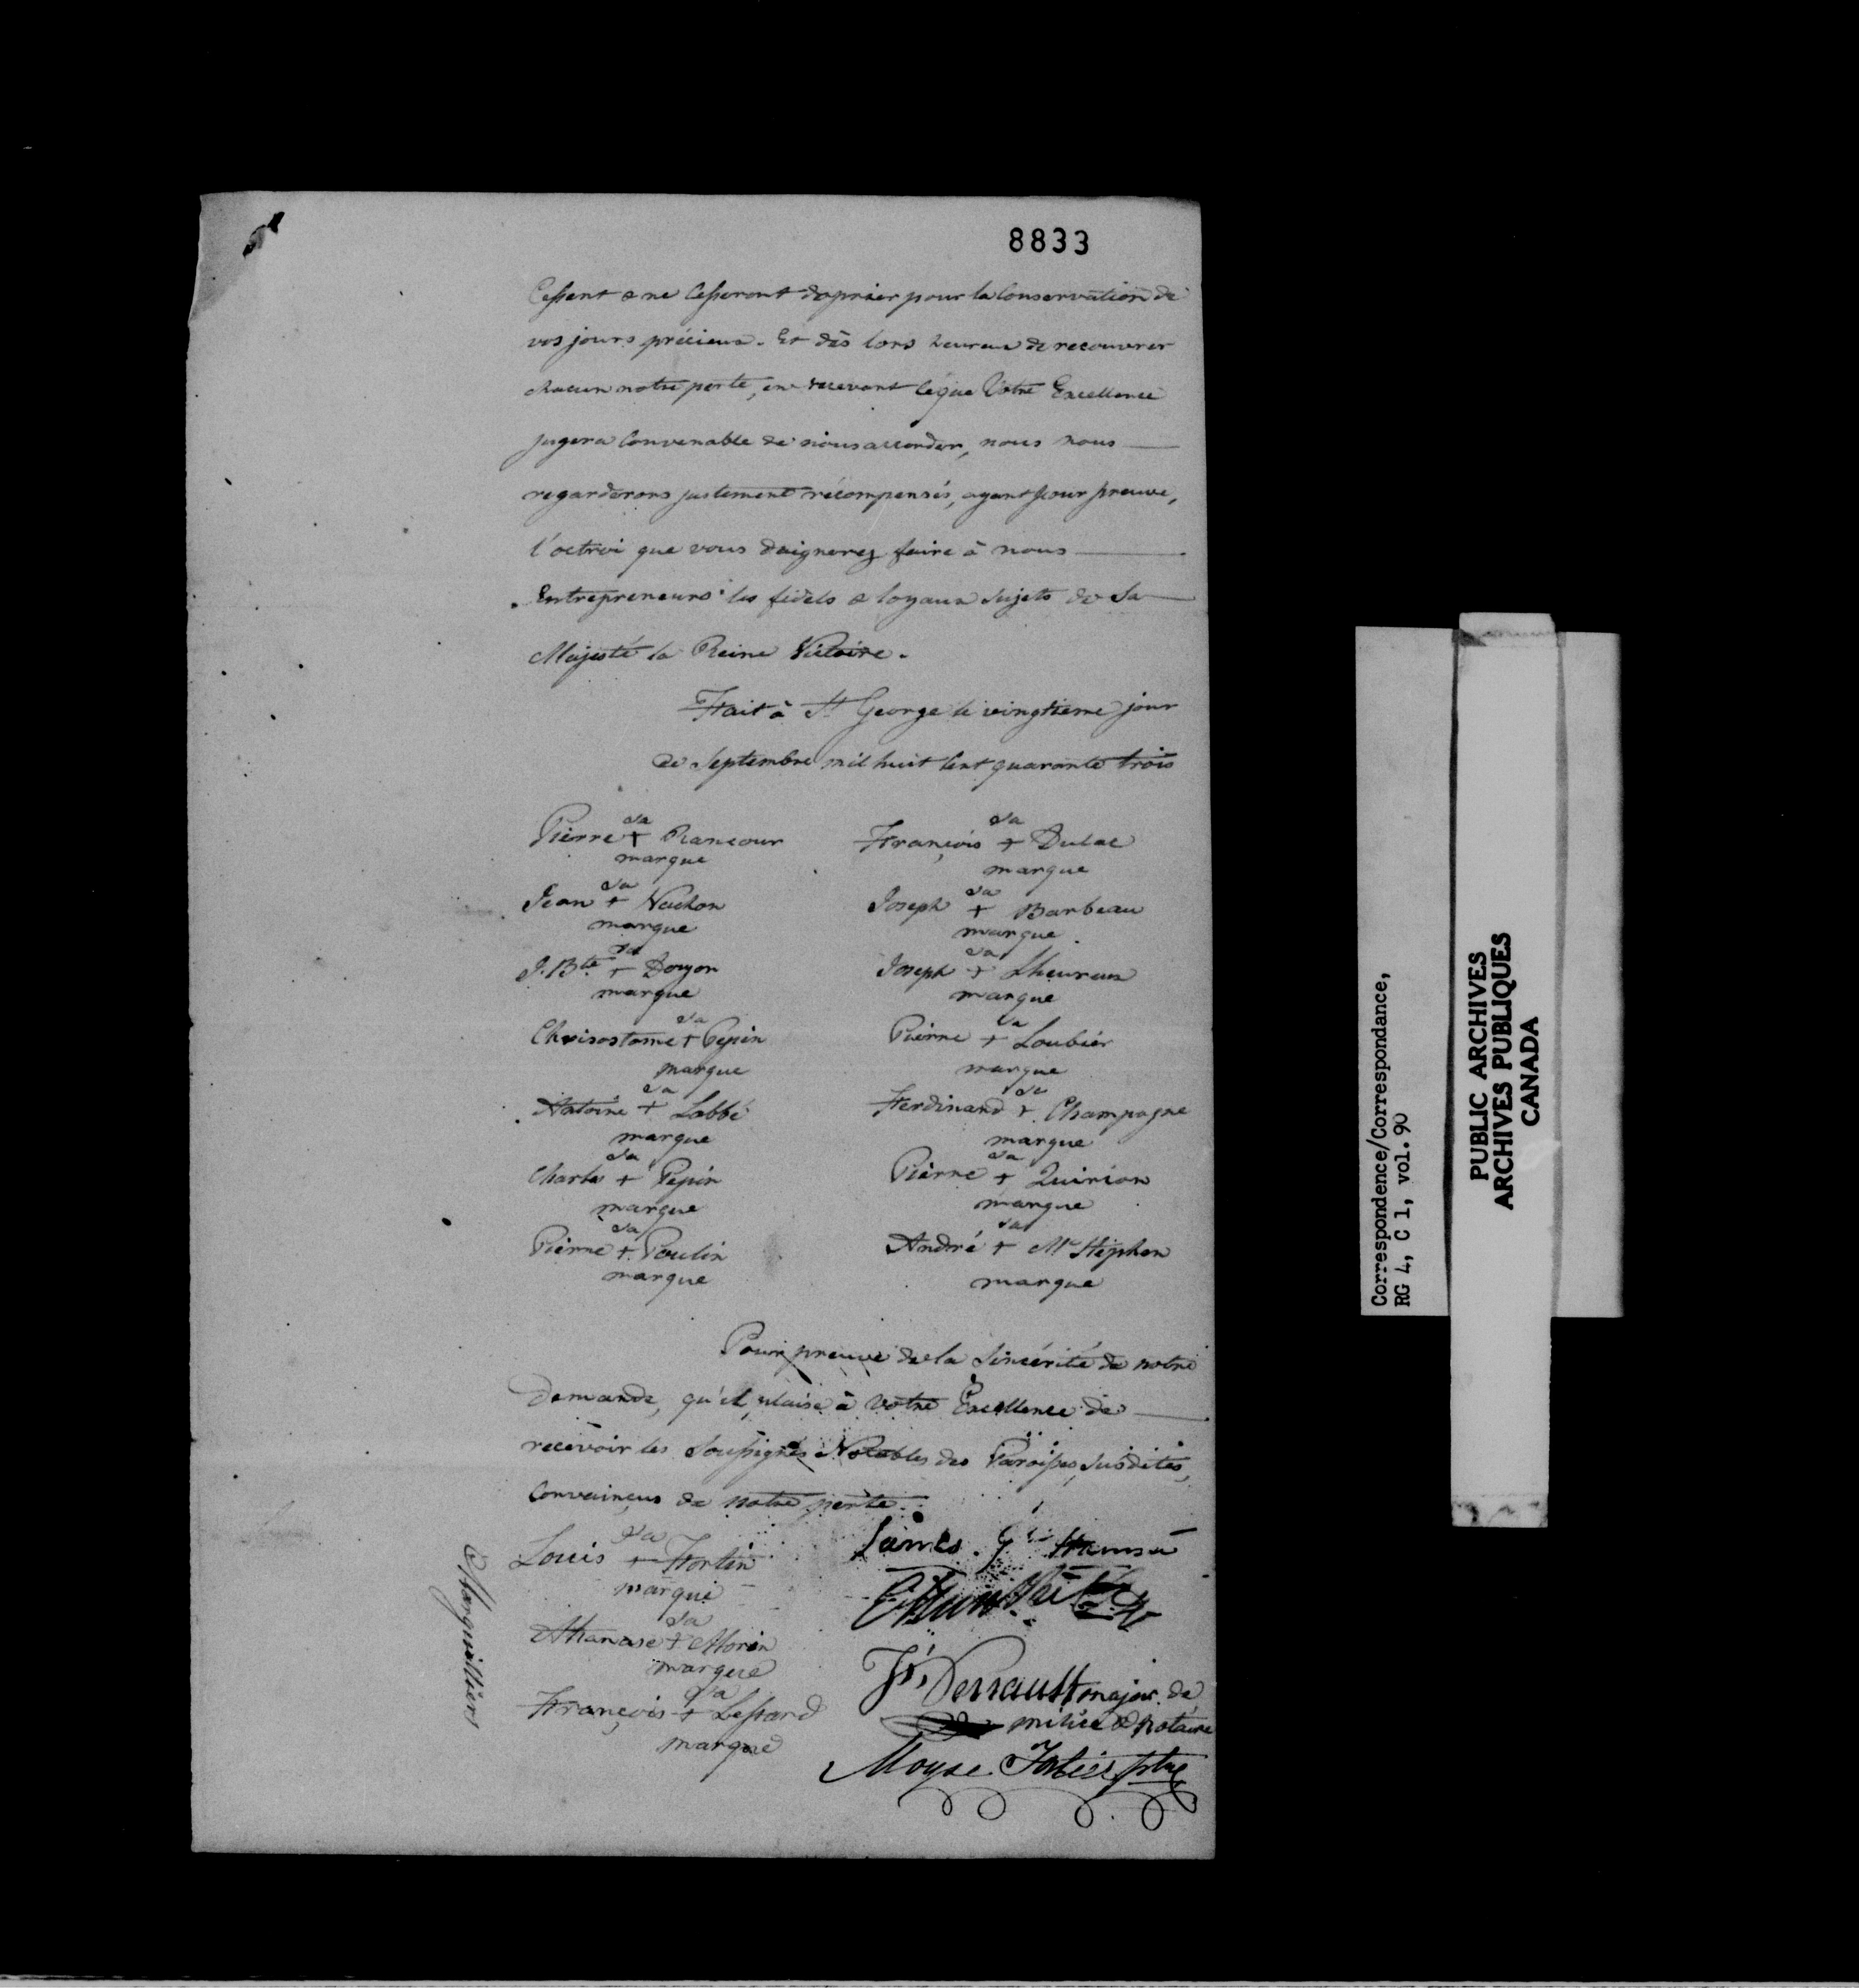 8833
Cessent & ne Cesseront de prier pour la Conservation de
vos jours précieux. Et dès lors heureux de recouvrer
chacun notre perte, en recevant ce que Votre Excellence
jugera Convenable de nous accorder, nous nous
regarderons justement récompensés, ayant pour preuve,
l'octroi que vous daignerez faire à nous
Entrepreneurs les fidels & loyaux Sujets de Sa
Majesté la Reine Victoire.
Fait à St George le vingtieme jour
de Septembre mil huit Cent quarante trois
Pierre sa + marque Rancour
François sa + marque Dulac
Jean sa + marque Vachon
Joseph sa + marque Barbeau
J. Bte sa + marque Doyon
Joseph sa + marque Lheureux
Chrisostome sa + marque Pepin
Pierre sa + marque Loubier
Antoine sa + marque Labbé
Ferdinand sa + marque Champagne
Charles sa + marque Pepin
Pierre sa + marque Quirion
Pierre sa + marque Poulin
André sa + marque Mc Stephen
Pour preuve de la Sincérité de notre
demande, qu'il plaise à Votre Excellence de
recevoir les Soussignés Notables des Paroisses susdites,
Convainçus de notre perte.
Louis sa + marque Fortin
James
Athanase sa + marque Morin
François sa + marque Lessard
Marguilliers
Perrault major de
milice & Notaire
Moyse Fortier ptre
Correspondence/Correspondance,
RG 4, C 1, vol. 90
PUBLIC ARCHIVES
ARCHIVES PUBLIQUES
CANADA